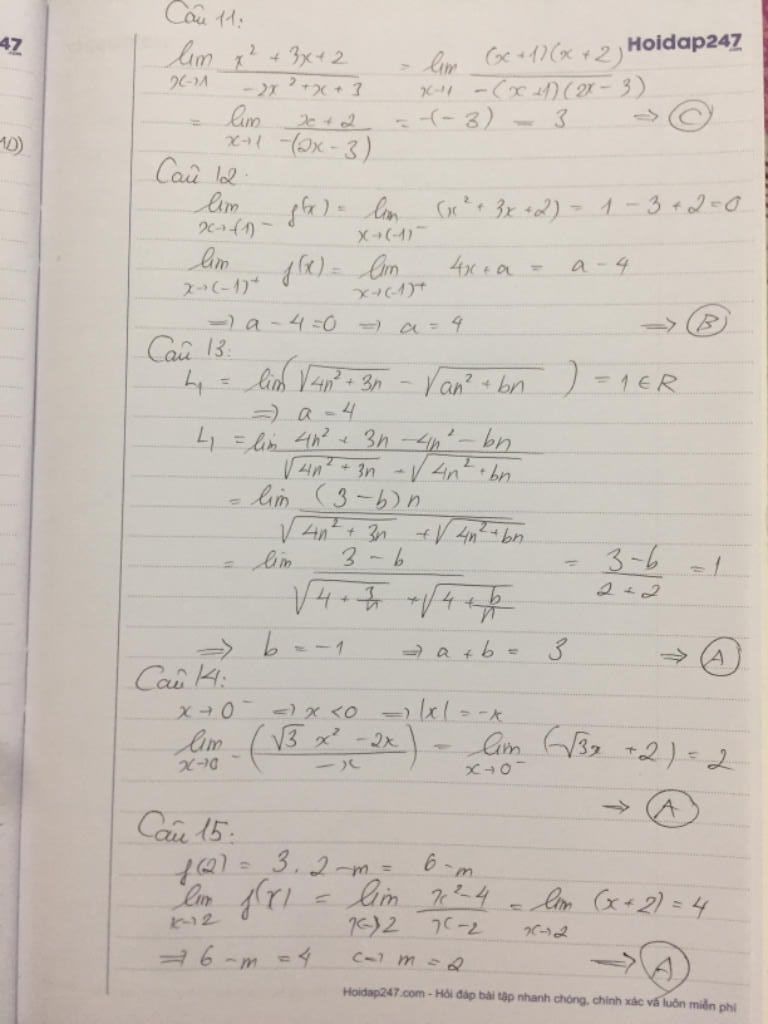 Câu 11:
47
.com
Hoidap247
.com
lim x→1 (x² + 3x + 2)/(-2x² + x + 3) = lim x→1 ((x+1)(x+2))/(-(x+1)(2x-3))
= lim x→1 (x+2)/(-(2x-3)) = -(-3) = 3 ⇒ C
Câu 12.
lim x→(-1)⁻ f(x) = lim x→(-1)⁻ (x² + 3x + 2) = 1 - 3 + 2 = 0
lim x→(-1)⁺ f(x) = lim x→(-1)⁺ 4x + a = a - 4
⇒ a - 4 = 0 ⇒ a = 4 ⇒ B
Câu 13:
L₁ = lim(√(4n² + 3n) - √(an² + bn)) = 1 ∈ R
⇒ a = 4
L₁ = lim (4n² + 3n - 4n² - bn)/(√(4n² + 3n) + √(4n² + bn))
= lim ((3 - b)n)/(√(4n² + 3n) + √(4n² + bn))
= lim (3 - b)/(√(4 + 3/n) + √(4 + b/n)) = (3-b)/(2+2) = 1
⇒ b = -1 ⇒ a + b = 3 ⇒ A
Câu 14:
x→0⁻ ⇒ x < 0 ⇒ |x| = -x
lim x→0⁻ ((√3 x² - 2x)/(-x)) = lim x→0⁻ (-√3x + 2) = 2
⇒ A
Câu 15:
f(2) = 3.2 - m = 6 - m
lim x→2 f(x) = lim x→2 (x²-4)/(x-2) = lim x→2 (x + 2) = 4
⇒ 6 - m = 4 ⇔ m = 2 ⇒ A
Hoidap247.com - Hỏi đáp bài tập nhanh chóng, chính xác và luôn miễn phí